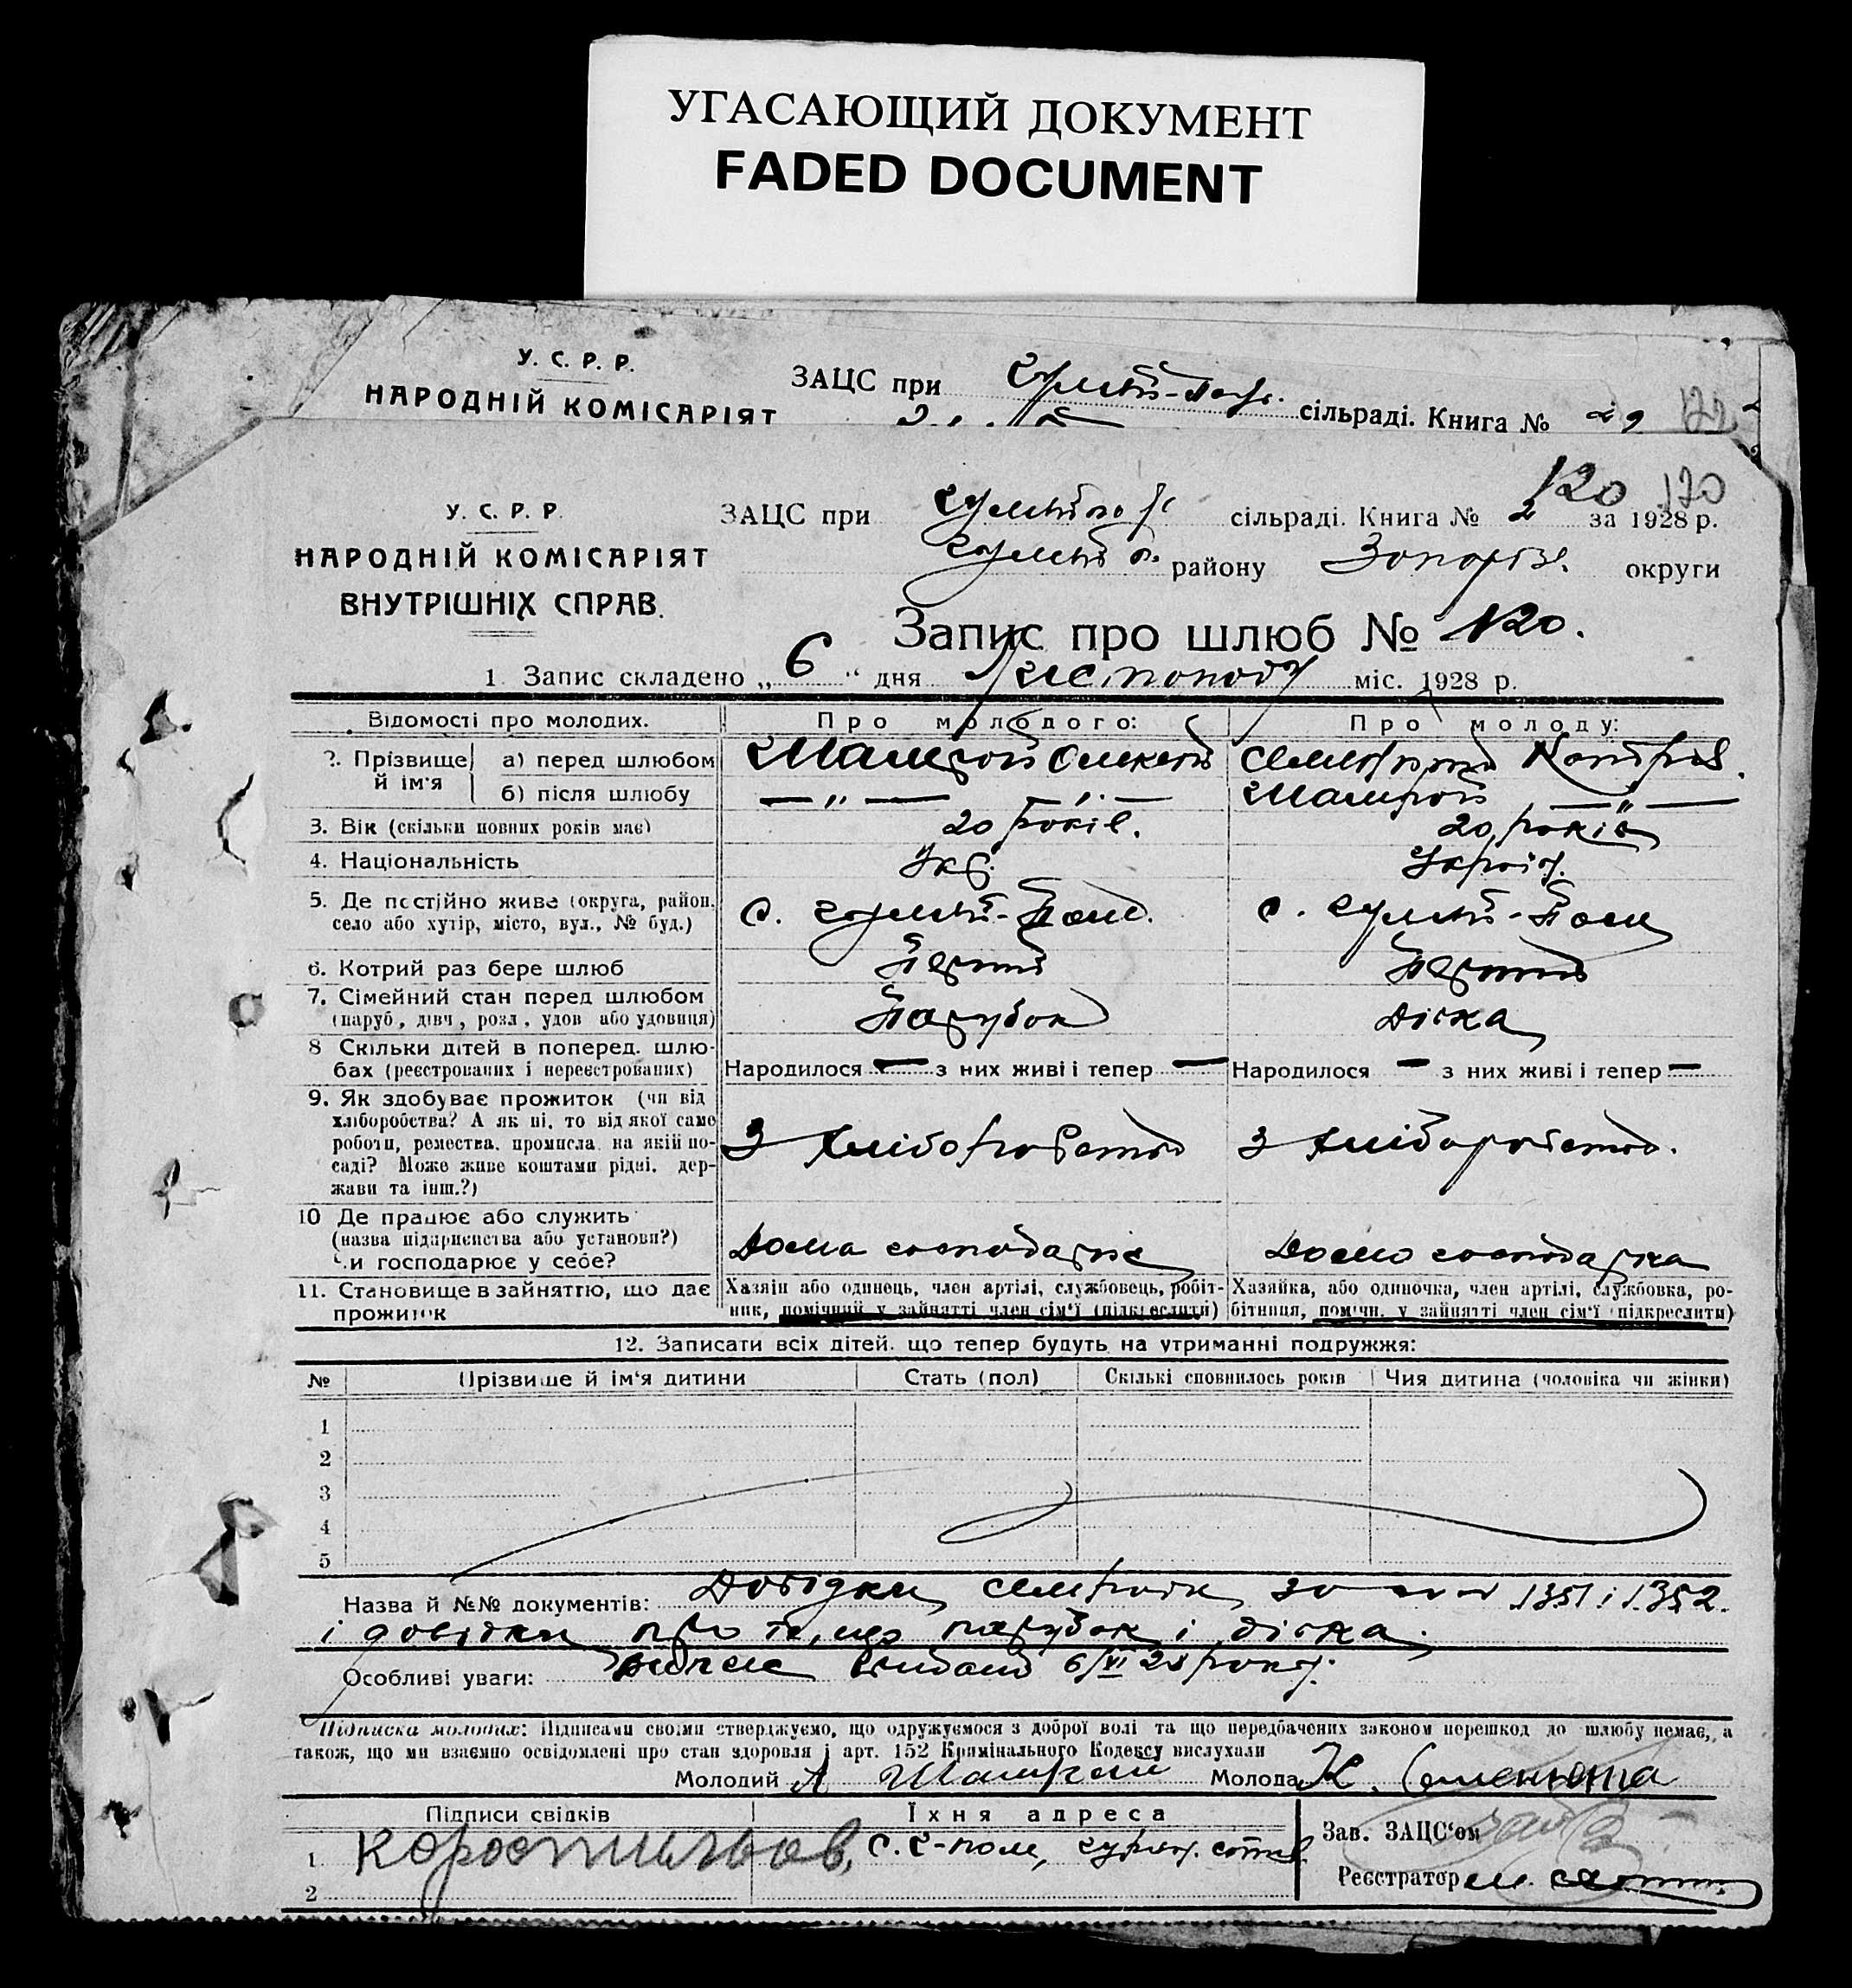 УГАСАЮЩИЙ ДОКУМЕНТ
FADED DOCUMENT
У. С. Р. Р.
НАРОДНІЙ КОМІСАРІЯТ
ЗАЦС при
сільраді. Книга №
120 120
У. С. Р. Р.
НАРОДНІЙ КОМІСАРІЯТ
ВНУТРІШНІХ СПРАВ.
ЗАЦС при сільраді. Книга № 2 за 1928 р.
району Запоріз. округи
Запис про шлюб № 120.
1. Запис складено „ 6 “ дня Листопаду міс. 1928 р.
Відомості про молодих. Про молодого: Про молоду:
2. Прізвище й ім'я
а) перед шлюбом
б) після шлюбу — „ — — „ — — „ —
3. Вік (скільки повних років має) 20 років. 20 років
4. Національність Укр. Україн.
5. Де постійно живе (округа, район,
село або хутір, місто, вул., № буд.) с. Гуляй-Поле. с. Гуляй-Поле
6. Котрий раз бере шлюб Перший Перший
7. Сімейний стан перед шлюбом
(паруб., дівч., розл., удов. або удовиця) Парубок Дівка
8 Скільки дітей в поперед. шлю-
бах (реєстрованих і нереєстрованих) Народилося — з них живі і тепер — Народилося — з них живі і тепер —
9. Як здобуває прожиток (чи від
хліборобства? А як ні, то від якої саме
роботи, ремества, промисла, на якій по-
саді? Може живе коштами рідні, дер-
жави та інш.?)
З хліборобства З хліборобства.
10 Де працює або служить
(назва підприємства або установи?)
Чи господарює у себе?
Дома господарює Дома господарка
11. Становище в зайняттю, що дає
прожиток
Хазяїн або одинець, член артілі, службовець, робіт-
ник, помічний у зайнятті член сім'ї (підкреслити)
Хазяйка, або одиночка, член артілі, службовка, ро-
бітниця, помічн. у зайнятті член сім'ї (підкреслити)
12. Записати всіх дітей, що тепер будуть на утриманні подружжя:
№ Прізвище й ім'я дитини Стать (пол) Скількі сповнилось років Чия дитина (чоловіка чи жінки)
1
2
3
4
5
Назва й №№ документів: Довідки за 1351 і 1352.
і довідки про те, що парубок і дівка.
Особливі уваги: видано 6/VI 28 року.
Підписка молодих: Підписами своїми стверджуємо, що одружуємося з доброї волі та що передбачених законом перешкод до шлюбу немає, а
також, що ми взаємно освідомлені про стан здоровля і арт. 152 Кримінального Кодексу вислухали
Молодий Молода К. Семенюта
Підписи свідків Їхня адреса
1. Коростильов, с. Г-поле,
2
Зав. ЗАЦС'ом
Реєстратор